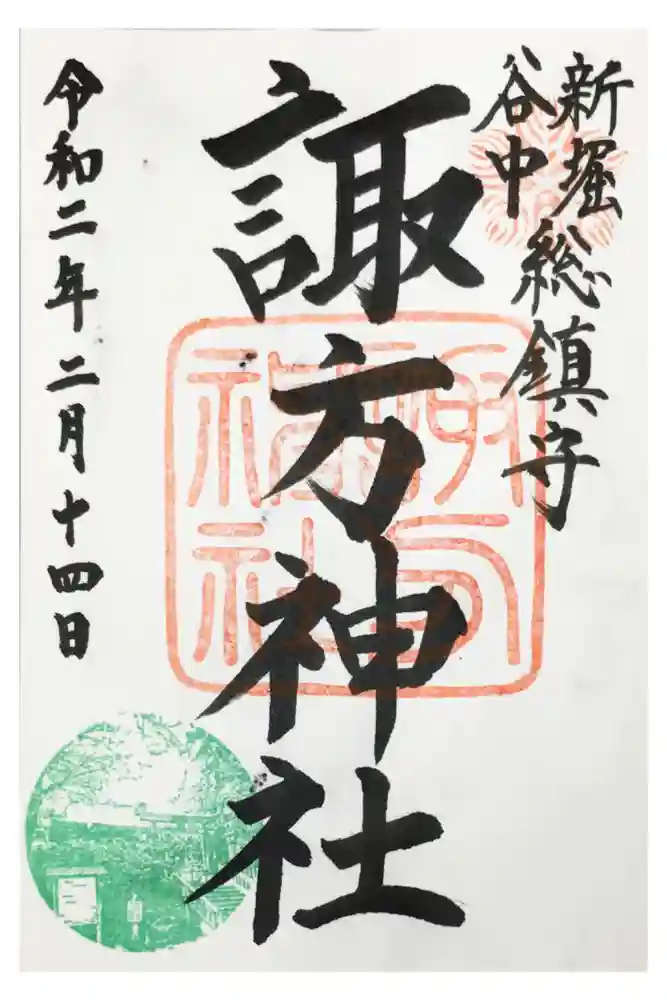 新堀
谷中
総鎮守
諏方神社
諏方
神社
令和二年二月十四日